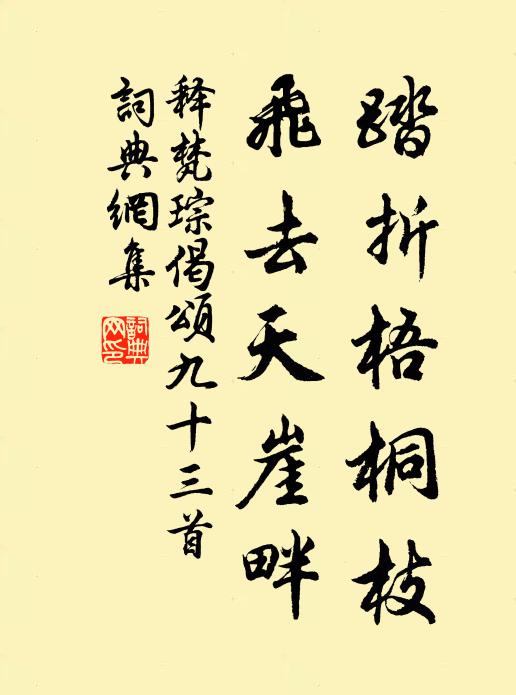 踏折梧桐枝
飛去天崖畔
释梵琮偈頌九十三首
詞典網集
詞典
网印